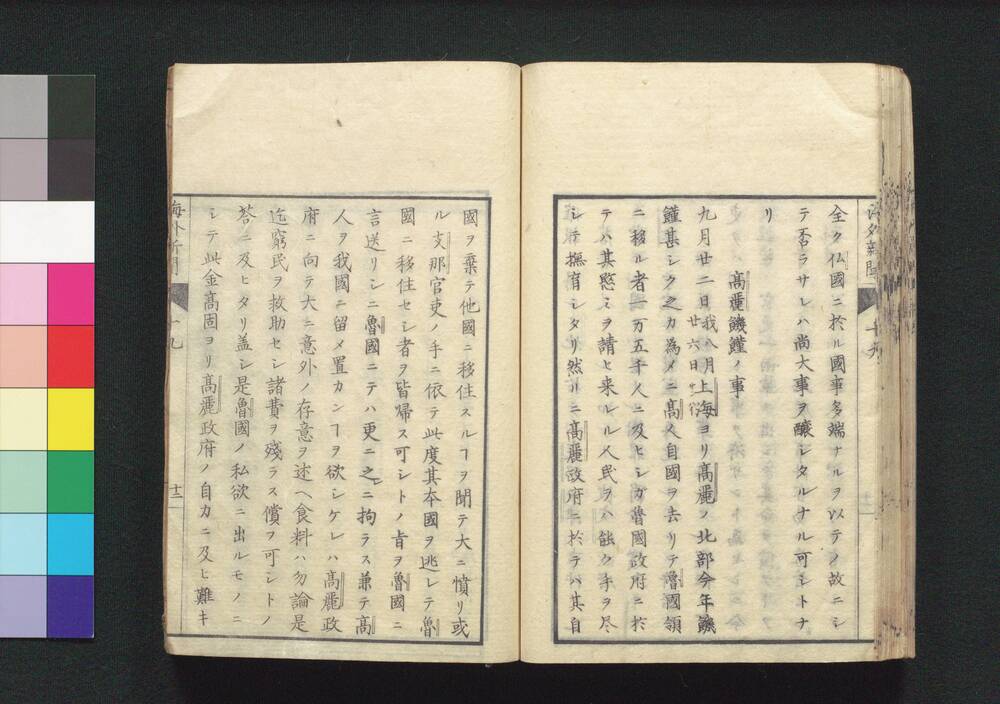 全ク仏國ニ於ル國事多端ナルヲ以テノ故ニシ
テ否ラサレハ尚大事ヲ釀シタルナル可シトナ
リ
高麗饑饉ノ事
九月廿二日我八月廿六日サヨリ上海ヨリ高麗ノ北部今年饑
饉甚シク之カ為メニ高人自國ヲ去リテ魯國領
ニ移ル者一万五千人ニ及ヒシガ魯國政府ニ於
テハ其愍ミヲ請ヒ来レル人民ヲハ能ク手ヲ尽
シテ撫育シタリ然ルニ高麗政府ニ於テハ其自
國ヲ棄テ他國ニ移住スルヿヲ聞テ大ニ憤リ或
ル支那官吏ノ手ニ依テ此度其本國ヲ逃レテ魯
國ニ移住セシ者ヲ皆帰ス可シトノ旨ヲ魯國ニ
言送リシニ魯國ニテハ更ニ之ニ拘ラス兼テ高
人ヲ我國ニ留メ置カンヿヲ欲シケレハ高麗政
府ニ向テ大ニ意外ノ存意ヲ述ヘ食料ハ勿論是
迠窮民ヲ救助セシ諸費ヲ殘ラス償フ可シトノ
荅ニ及ヒタリ盖シ是魯國ノ私欲ニ出ルモノニ
シテ此金高固ヨリ高麗政府ノ自力ニ及ヒ難キ
海外新聞
十九
十二